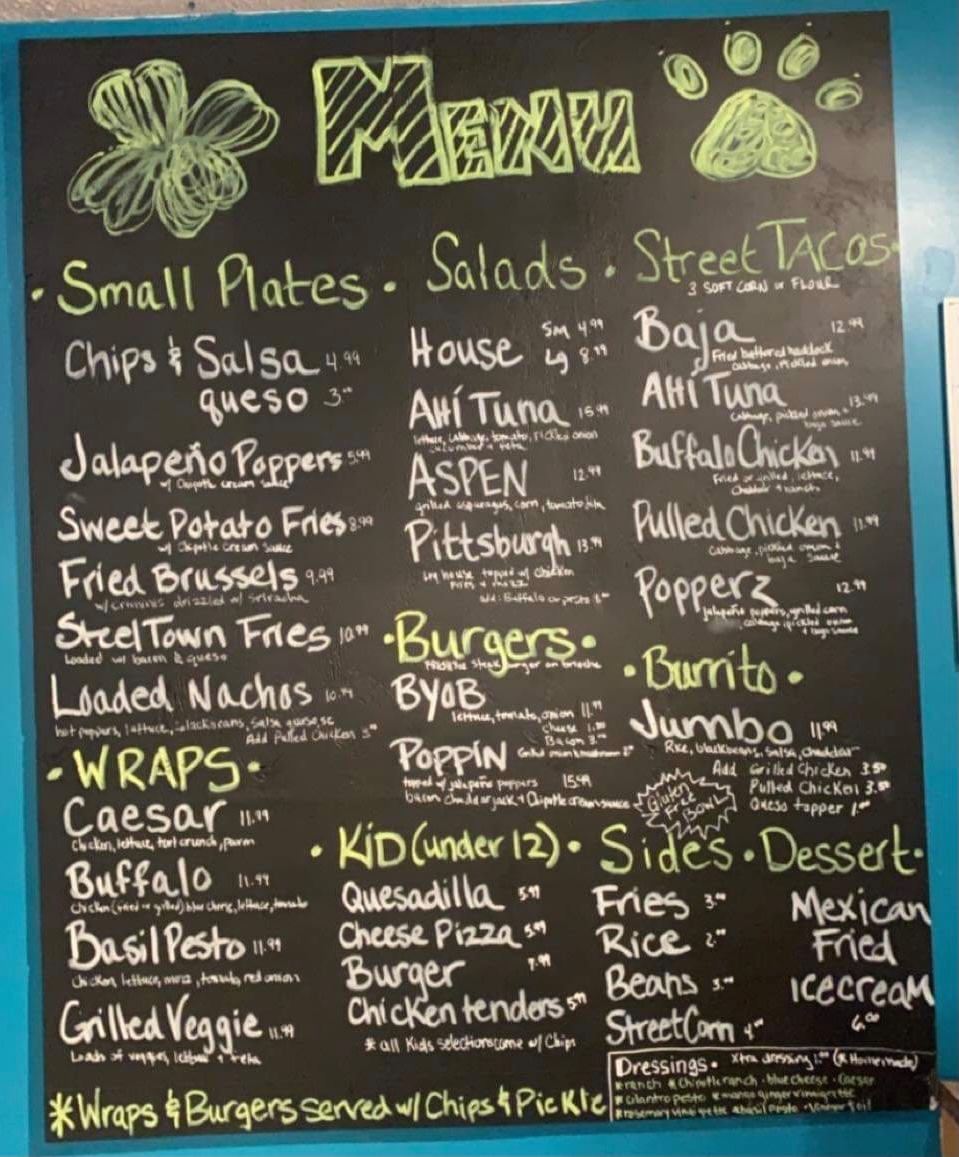 Menu
· Small Plates ·
Chips & Salsa 4.99
queso 3.00
Jalapeño Poppers 5.99
w/ Chipotle cream sauce
Sweet Potato Fries 8.99
w/ Chipotle Cream Sauce
Fried Brussels 9.99
drizzled w/ Sriracha
SteelTown Fries 10.99
Loaded w/ bacon & queso
Loaded Nachos 10.99
hot peppers, lettuce, blackbeans, salsa, queso, sc
Add Pulled Chicken
· WRAPS ·
Caesar 11.99
Chicken, lettuce, tort crunch, parm
Buffalo 11.99
Chicken (fried or grilled) blue cheese, lettuce, tomato
Basil Pesto 11.99
Chicken, lettuce, mozz, tomato, red onion
Grilled Veggie 11.99
Loads of veggies, lettuce + feta
Salads ·
House Sm 4.99
Lg 8.99
AHí Tuna 15.99
lettuce, cabbage, tomato, pickled onion
cucumber + feta
ASPEN 12.99
grilled asparagus, corn, tomato, feta
Pittsburgh 13.99
Lrg house topped w/ Chicken
Fries + mozz
add: Buffalo or pesto
· Burgers ·
steak burger on brioche
BYOB
lettuce, tomato, onion 11.99
Cheese 1.00
Bacon 3.00
POPPIN 15.99
topped w/ jalapeño poppers
bacon cheddar jack + Chipotle cream sauce
· KiD (under 12) ·
Quesadilla 5.99
Cheese Pizza 5.99
Burger 7.99
Chicken tenders 5.99
* all Kids selections come w/ Chips
Street TACOS ·
3 SOFT CORN or FLOUR
Baja 12.99
Fried battered haddock
cabbage, pickled onion
AHí Tuna 13.99
Cabbage, pickled onion +
baja sauce
Buffalo Chicken 11.99
Fried or grilled, lettuce,
Cheddar + ranch
Pulled Chicken 11.99
Cabbage, pickled onion +
baja sauce
Popperz 12.99
jalapeño poppers, grilled corn
cabbage, pickled onion
+ baja sauce
· Burrito ·
Jumbo 11.99
Rice, blackbeans, salsa, cheddar
Add Grilled Chicken 3.50
Pulled Chicken 3.50
Queso topper 1.00
Gluten
Free
Bowl
Sides ·
Fries 3.00
Rice 2.00
Beans 3.00
Street Corn 4.00
Dessert ·
Mexican
Fried
icecream
6.00
Dressings · Xtra dressing 1.00 (* Homemade)
* ranch * Chipotle ranch · blue cheese · Caesar
* cilantro pesto * mango ginger vinaigrette
* rosemary vinaigrette * basil pesto · Vinegar & oil
* Wraps & Burgers served w/ Chips & Pickle